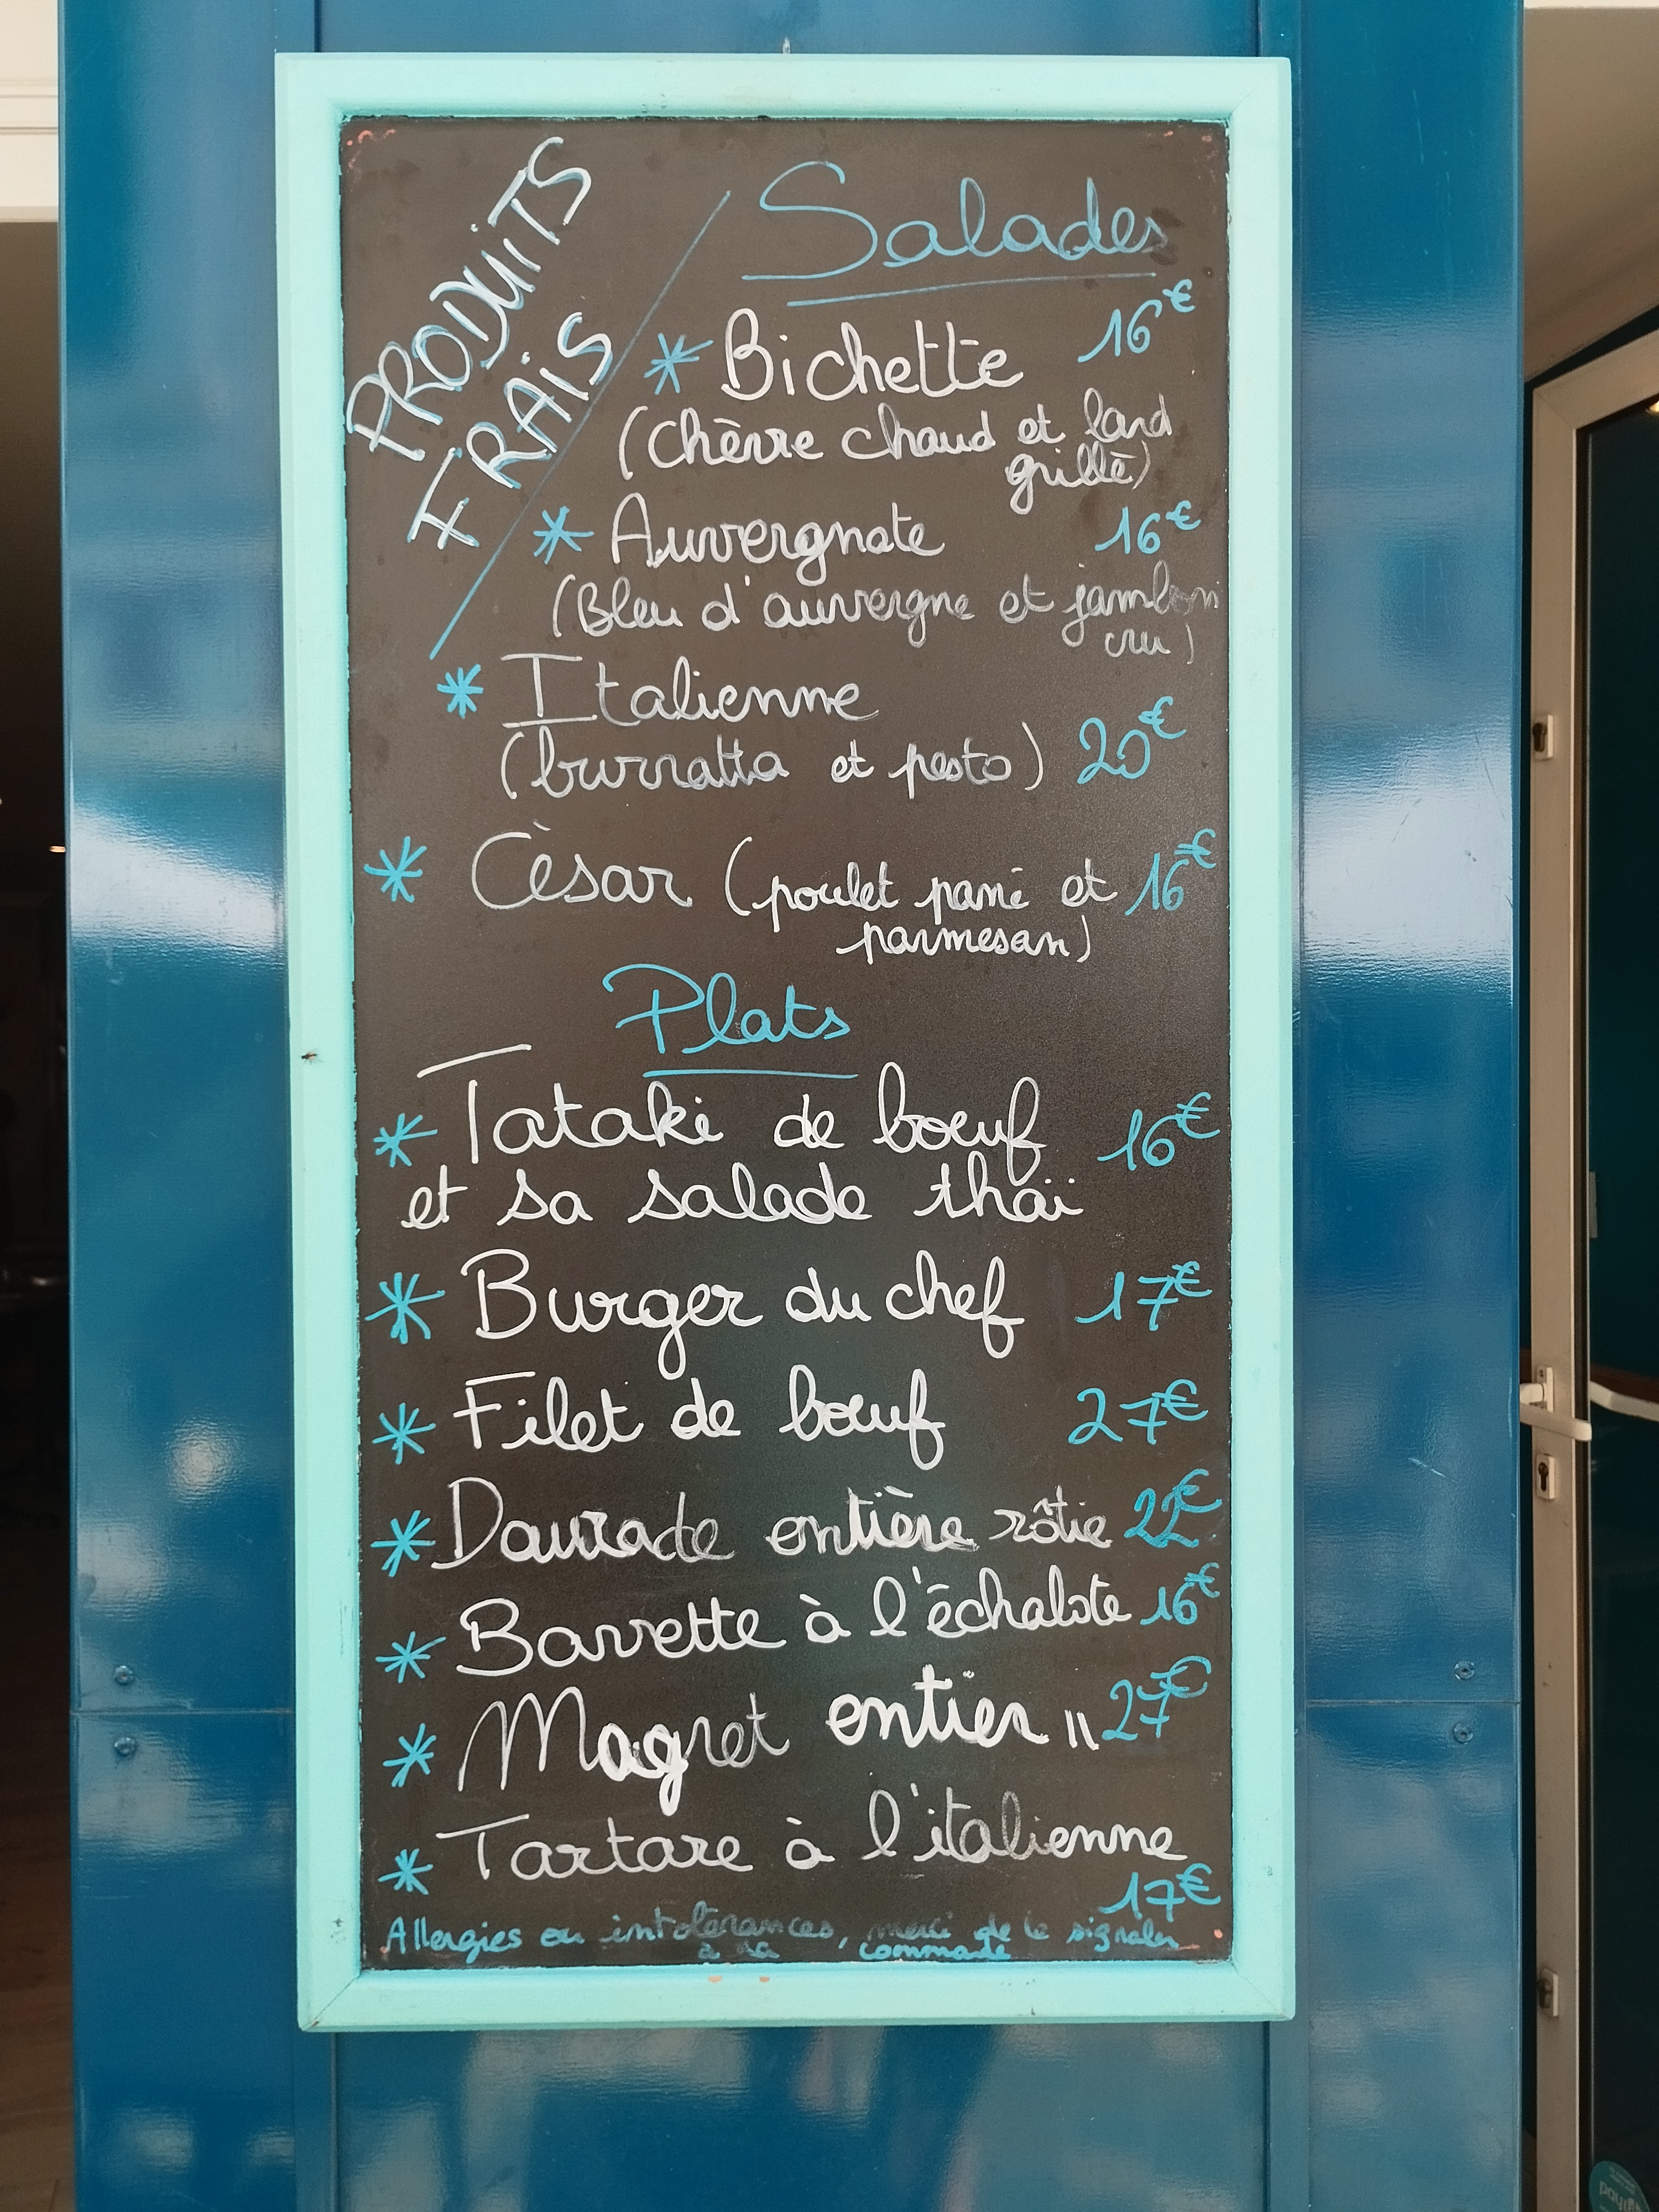 PRODUITS
FRAIS
Salades
* Bichette 16€
(Chèvre chaud et lard
grillé)
* Auvergnate 16€
(Bleu d'auvergne et jambon
cru)
* Italienne
(burratta et pesto) 20€
* Cèsar (poulet pané et 16€
parmesan)
Plats
* Tataki de boeuf 16€
et sa salade thaï
* Burger du chef 17€
* Filet de boeuf 27€
* Daurade entière rôtie 22€
* Bavette à l'échalote 16€
* Magret entier 27€
* Tartare à l'italienne
17€
Allergies ou intolérances, merci de le signaler
à la commande